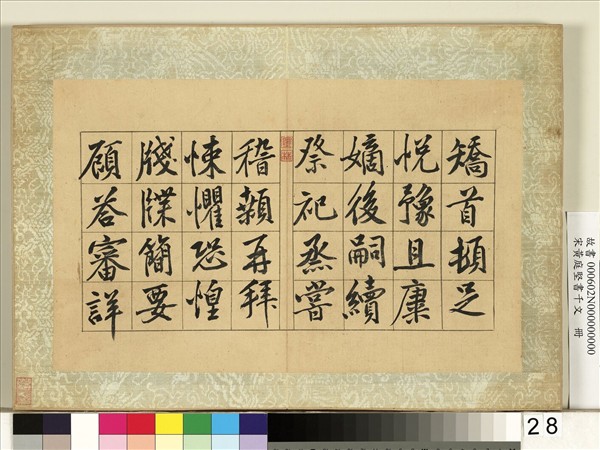 矯首頓足
悅豫且康
嫡後嗣續
祭祀烝嘗
稽顙再拜
悚懼恐惶
牋牒簡要
顧答審詳
故書 000602N000000000
宋黃庭堅書千文 冊
28